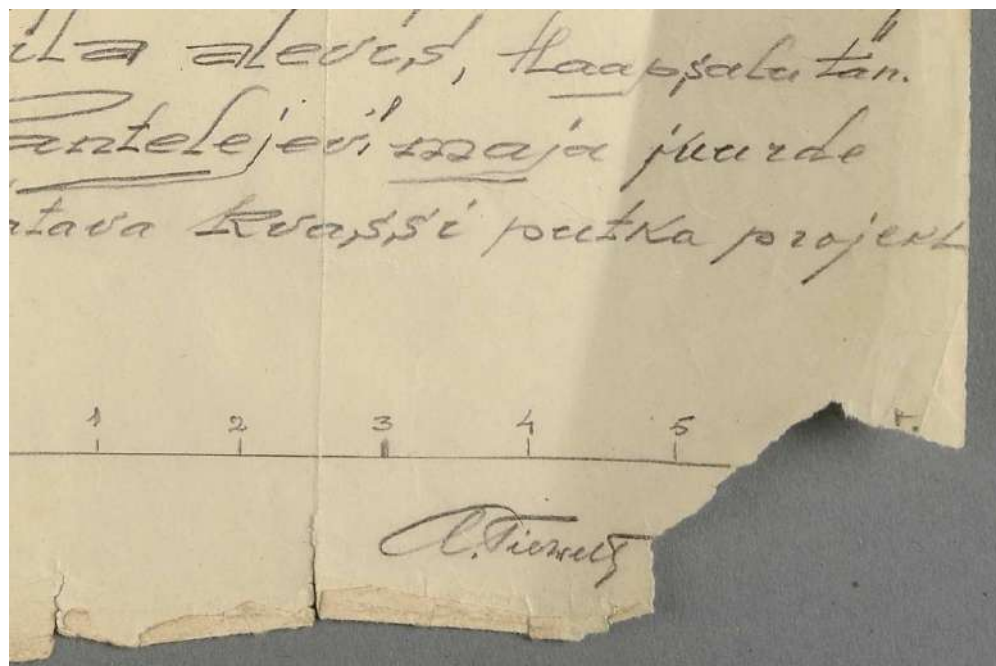 ila alevis, Haapsalu tän.
Pantelejevi maja juurde
atava kvassi putka projekt
1 2 3 4 5 r.